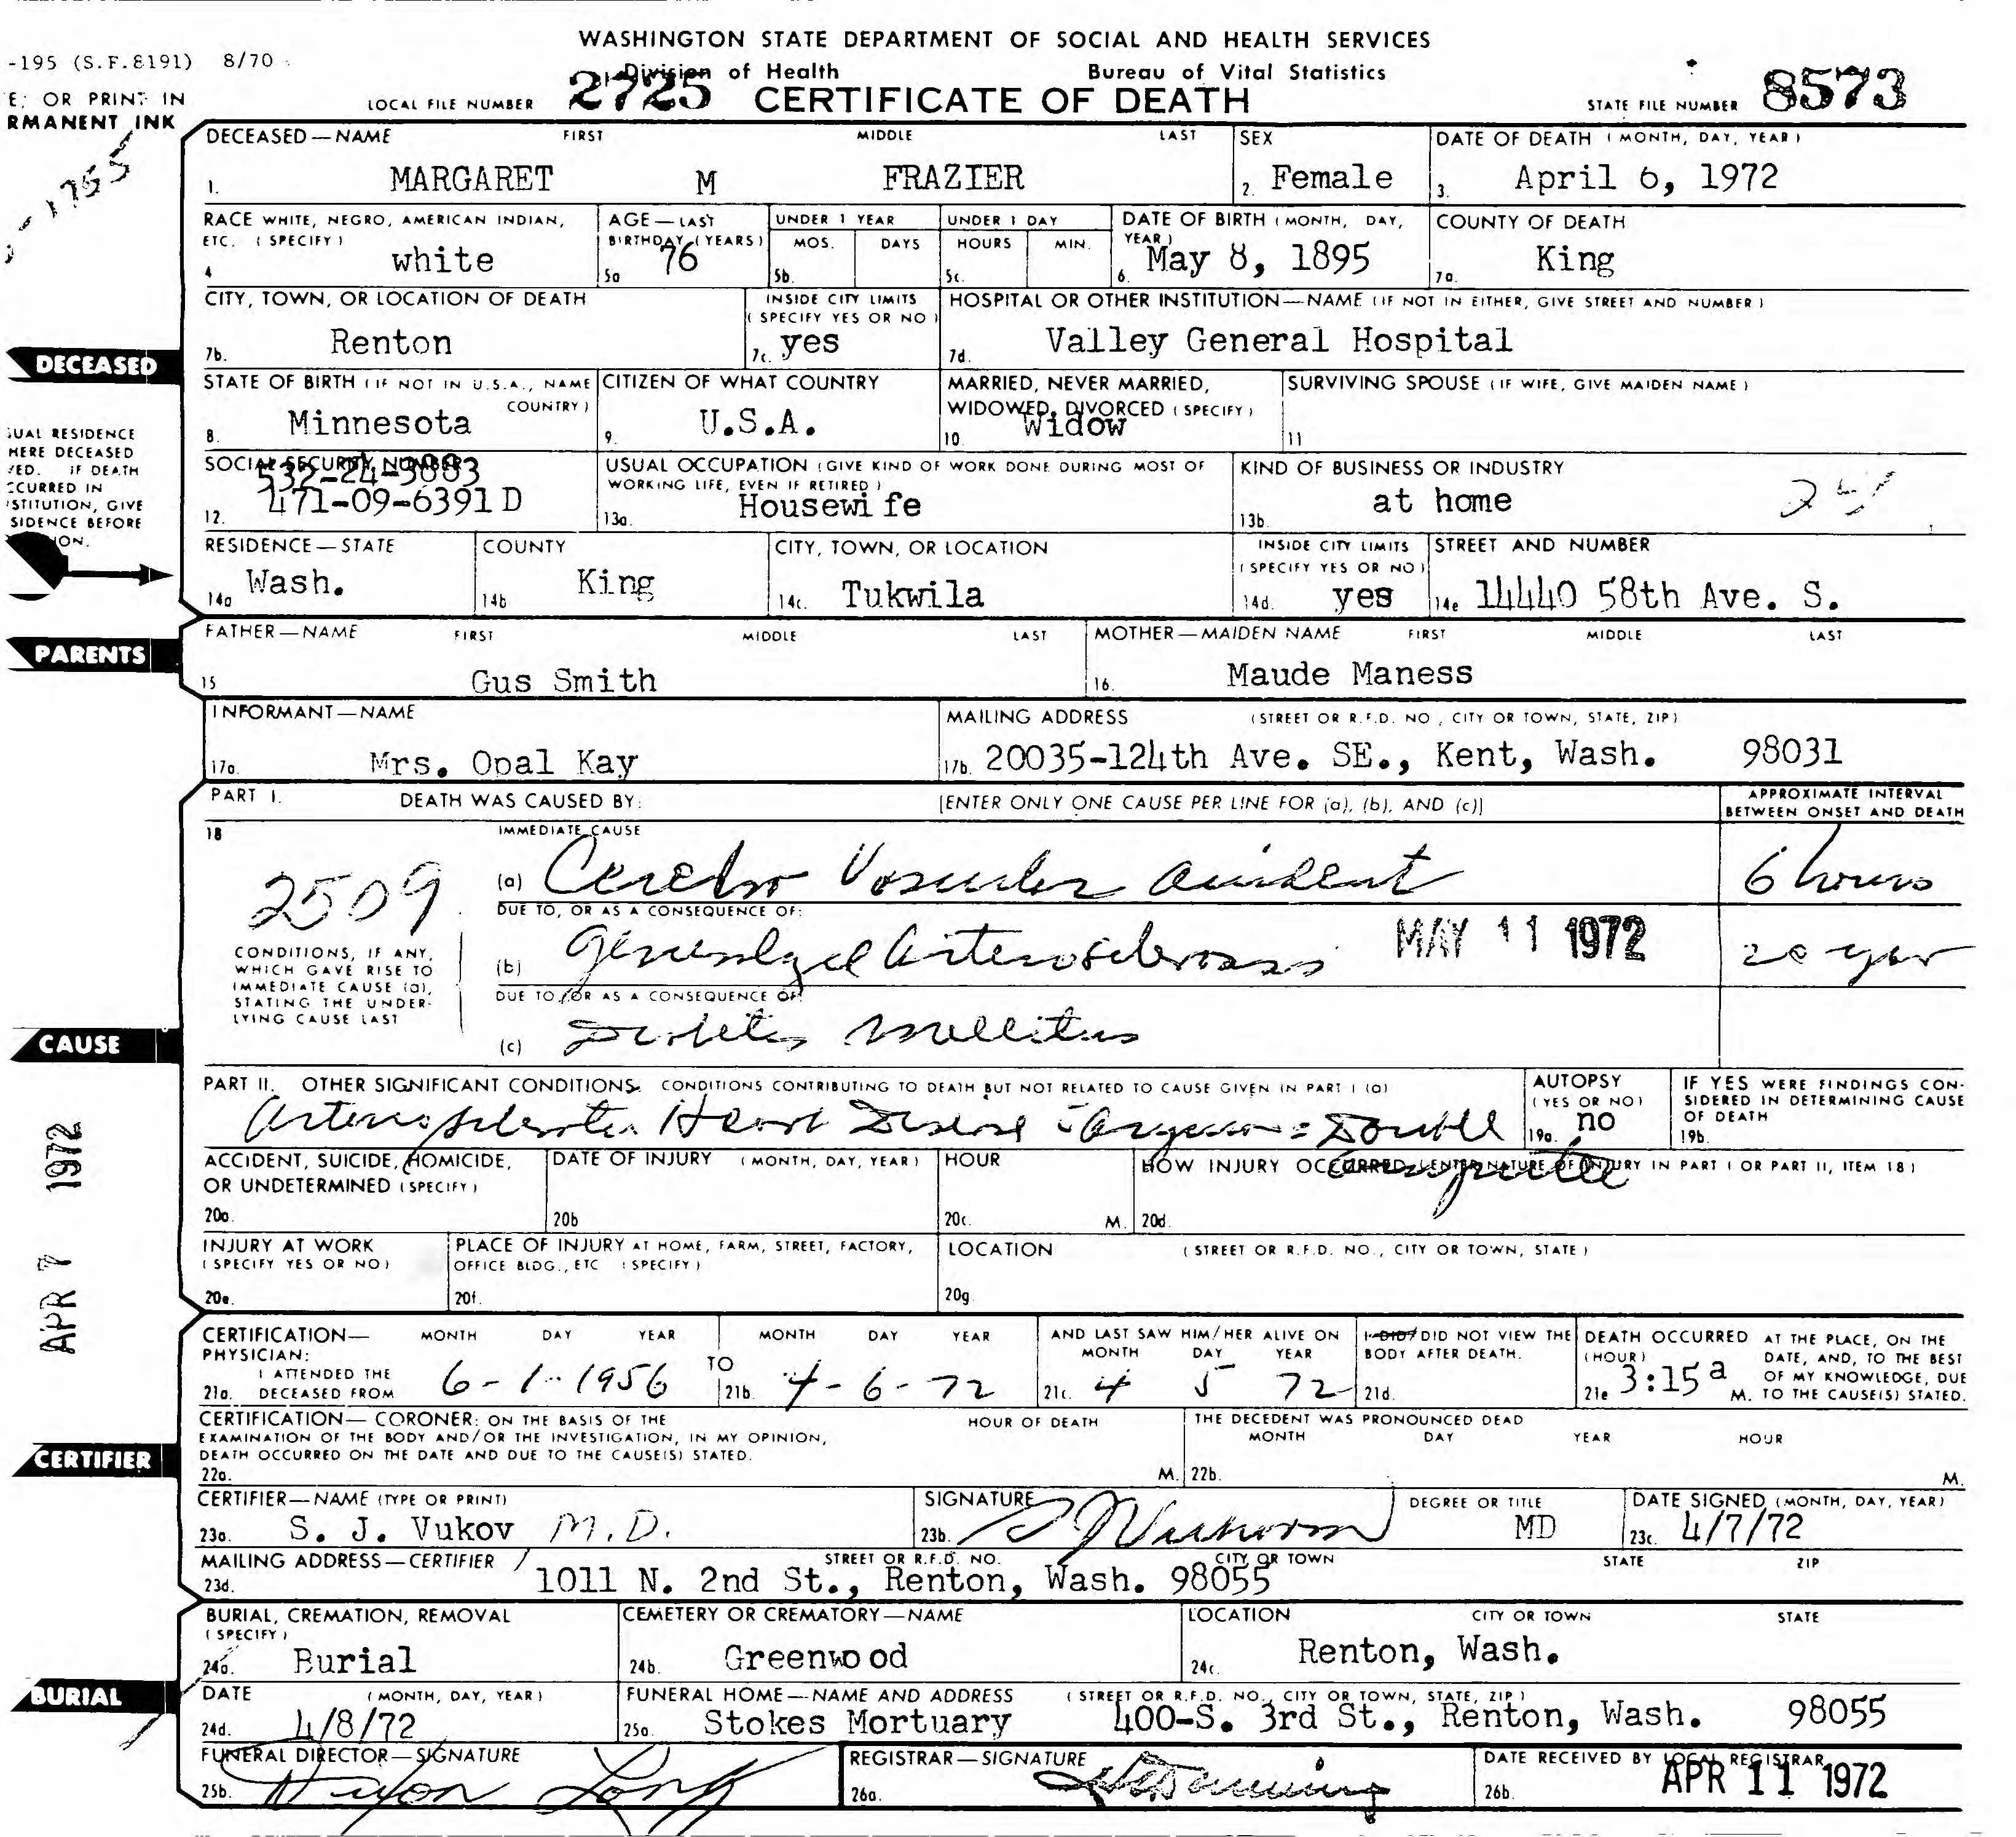 WASHINGTON STATE DEPARTMENT OF SOCIAL AND HEALTH SERVICES
-195 (S.F.8191) 8/70
Division of Health Bureau of Vital Statistics
E; OR PRINT IN
RMANENT INK
LOCAL FILE NUMBER 2725 CERTIFICATE OF DEATH STATE FILE NUMBER 8573
DECEASED—NAME FIRST MIDDLE LAST SEX DATE OF DEATH (MONTH, DAY, YEAR)
1. MARGARET M FRAZIER 2. Female 3. April 6, 1972
RACE WHITE, NEGRO, AMERICAN INDIAN, AGE—LAST UNDER 1 YEAR UNDER 1 DAY DATE OF BIRTH (MONTH, DAY, COUNTY OF DEATH
ETC. (SPECIFY) BIRTHDAY (YEARS) MOS. DAYS HOURS MIN. YEAR)
4 white 5a 76 5b. 5c. 6. May 8, 1895 7a. King
CITY, TOWN, OR LOCATION OF DEATH INSIDE CITY LIMITS HOSPITAL OR OTHER INSTITUTION—NAME (IF NOT IN EITHER, GIVE STREET AND NUMBER)
(SPECIFY YES OR NO)
7b. Renton 7c. yes 7d. Valley General Hospital
DECEASED
STATE OF BIRTH (IF NOT IN U.S.A., NAME CITIZEN OF WHAT COUNTRY MARRIED, NEVER MARRIED, SURVIVING SPOUSE (IF WIFE, GIVE MAIDEN NAME)
COUNTRY) WIDOWED, DIVORCED (SPECIFY)
8. Minnesota 9. U.S.A. 10. Widow 11
SUAL RESIDENCE
HERE DECEASED
VED. IF DEATH
CCURRED IN
STITUTION, GIVE
SIDENCE BEFORE
ION.
SOCIAL SECURITY NUMBER USUAL OCCUPATION (GIVE KIND OF WORK DONE DURING MOST OF KIND OF BUSINESS OR INDUSTRY
532-24-3883 WORKING LIFE, EVEN IF RETIRED)
12. 471-09-6391D 13a. Housewife 13b. at home
RESIDENCE—STATE COUNTY CITY, TOWN, OR LOCATION INSIDE CITY LIMITS STREET AND NUMBER
(SPECIFY YES OR NO)
14a Wash. 14b King 14c. Tukwila 14d. yes 14e 14440 58th Ave. S.
PARENTS
FATHER—NAME FIRST MIDDLE LAST MOTHER—MAIDEN NAME FIRST MIDDLE LAST
15 Gus Smith 16. Maude Maness
INFORMANT—NAME MAILING ADDRESS (STREET OR R.F.D. NO., CITY OR TOWN, STATE, ZIP)
17a. Mrs. Opal Kay 17b. 20035-124th Ave. SE., Kent, Wash. 98031
PART I. DEATH WAS CAUSED BY: [ENTER ONLY ONE CAUSE PER LINE FOR (a), (b), AND (c)] APPROXIMATE INTERVAL
BETWEEN ONSET AND DEATH
18 IMMEDIATE CAUSE
2509 (a) Cerebro Vascular accident 6 hours
DUE TO, OR AS A CONSEQUENCE OF:
MAY 11 1972
CONDITIONS, IF ANY,
WHICH GAVE RISE TO
IMMEDIATE CAUSE (a),
STATING THE UNDER-
LYING CAUSE LAST
(b) Generalized Arteriosclerosis 20 year
DUE TO, OR AS A CONSEQUENCE OF:
(c) Diabetes Mellitus
CAUSE
PART II. OTHER SIGNIFICANT CONDITIONS: CONDITIONS CONTRIBUTING TO DEATH BUT NOT RELATED TO CAUSE GIVEN IN PART I (a) AUTOPSY IF YES WERE FINDINGS CON-
(YES OR NO) SIDERED IN DETERMINING CAUSE
OF DEATH
Arteriosclerotic Heart Disease Double 19a. no 19b.
amputee
ACCIDENT, SUICIDE, HOMICIDE, DATE OF INJURY (MONTH, DAY, YEAR) HOUR HOW INJURY OCCURRED (ENTER NATURE OF INJURY IN PART I OR PART II, ITEM 18)
OR UNDETERMINED (SPECIFY)
20a. 20b 20c. M. 20d.
INJURY AT WORK PLACE OF INJURY AT HOME, FARM, STREET, FACTORY, LOCATION (STREET OR R.F.D. NO., CITY OR TOWN, STATE)
(SPECIFY YES OR NO) OFFICE BLDG., ETC (SPECIFY)
20e. 20f. 20g.
APR 7 1972
CERTIFICATION— MONTH DAY YEAR MONTH DAY YEAR AND LAST SAW HIM/HER ALIVE ON I DID/DID NOT VIEW THE DEATH OCCURRED AT THE PLACE, ON THE
PHYSICIAN: MONTH DAY YEAR BODY AFTER DEATH. (HOUR) DATE, AND, TO THE BEST
I ATTENDED THE TO OF MY KNOWLEDGE, DUE
21a. DECEASED FROM 6-1-1956 21b. 4-6-72 21c. 4 5 72 21d. 21e 3:15 a M. TO THE CAUSE(S) STATED.
CERTIFICATION—CORONER: ON THE BASIS OF THE HOUR OF DEATH THE DECEDENT WAS PRONOUNCED DEAD
EXAMINATION OF THE BODY AND/OR THE INVESTIGATION, IN MY OPINION, MONTH DAY YEAR HOUR
DEATH OCCURRED ON THE DATE AND DUE TO THE CAUSE(S) STATED.
22a. M. 22b. M.
CERTIFIER
CERTIFIER—NAME (TYPE OR PRINT) SIGNATURE DEGREE OR TITLE DATE SIGNED (MONTH, DAY, YEAR)
23a. S. J. Vukov M.D. 23b. MD 23c. 4/7/72
MAILING ADDRESS—CERTIFIER STREET OR R.F.D. NO. CITY OR TOWN STATE ZIP
23d. 1011 N. 2nd St., Renton, Wash. 98055
BURIAL, CREMATION, REMOVAL CEMETERY OR CREMATORY—NAME LOCATION CITY OR TOWN STATE
(SPECIFY)
24a. Burial 24b. Greenwood 24c. Renton, Wash.
BURIAL
DATE (MONTH, DAY, YEAR) FUNERAL HOME—NAME AND ADDRESS (STREET OR R.F.D. NO., CITY OR TOWN, STATE, ZIP)
24d. 4/8/72 25a. Stokes Mortuary 400-S. 3rd St., Renton, Wash. 98055
FUNERAL DIRECTOR—SIGNATURE REGISTRAR—SIGNATURE DATE RECEIVED BY LOCAL REGISTRAR
25b. Dixon Long 26a. 26b. APR 11 1972